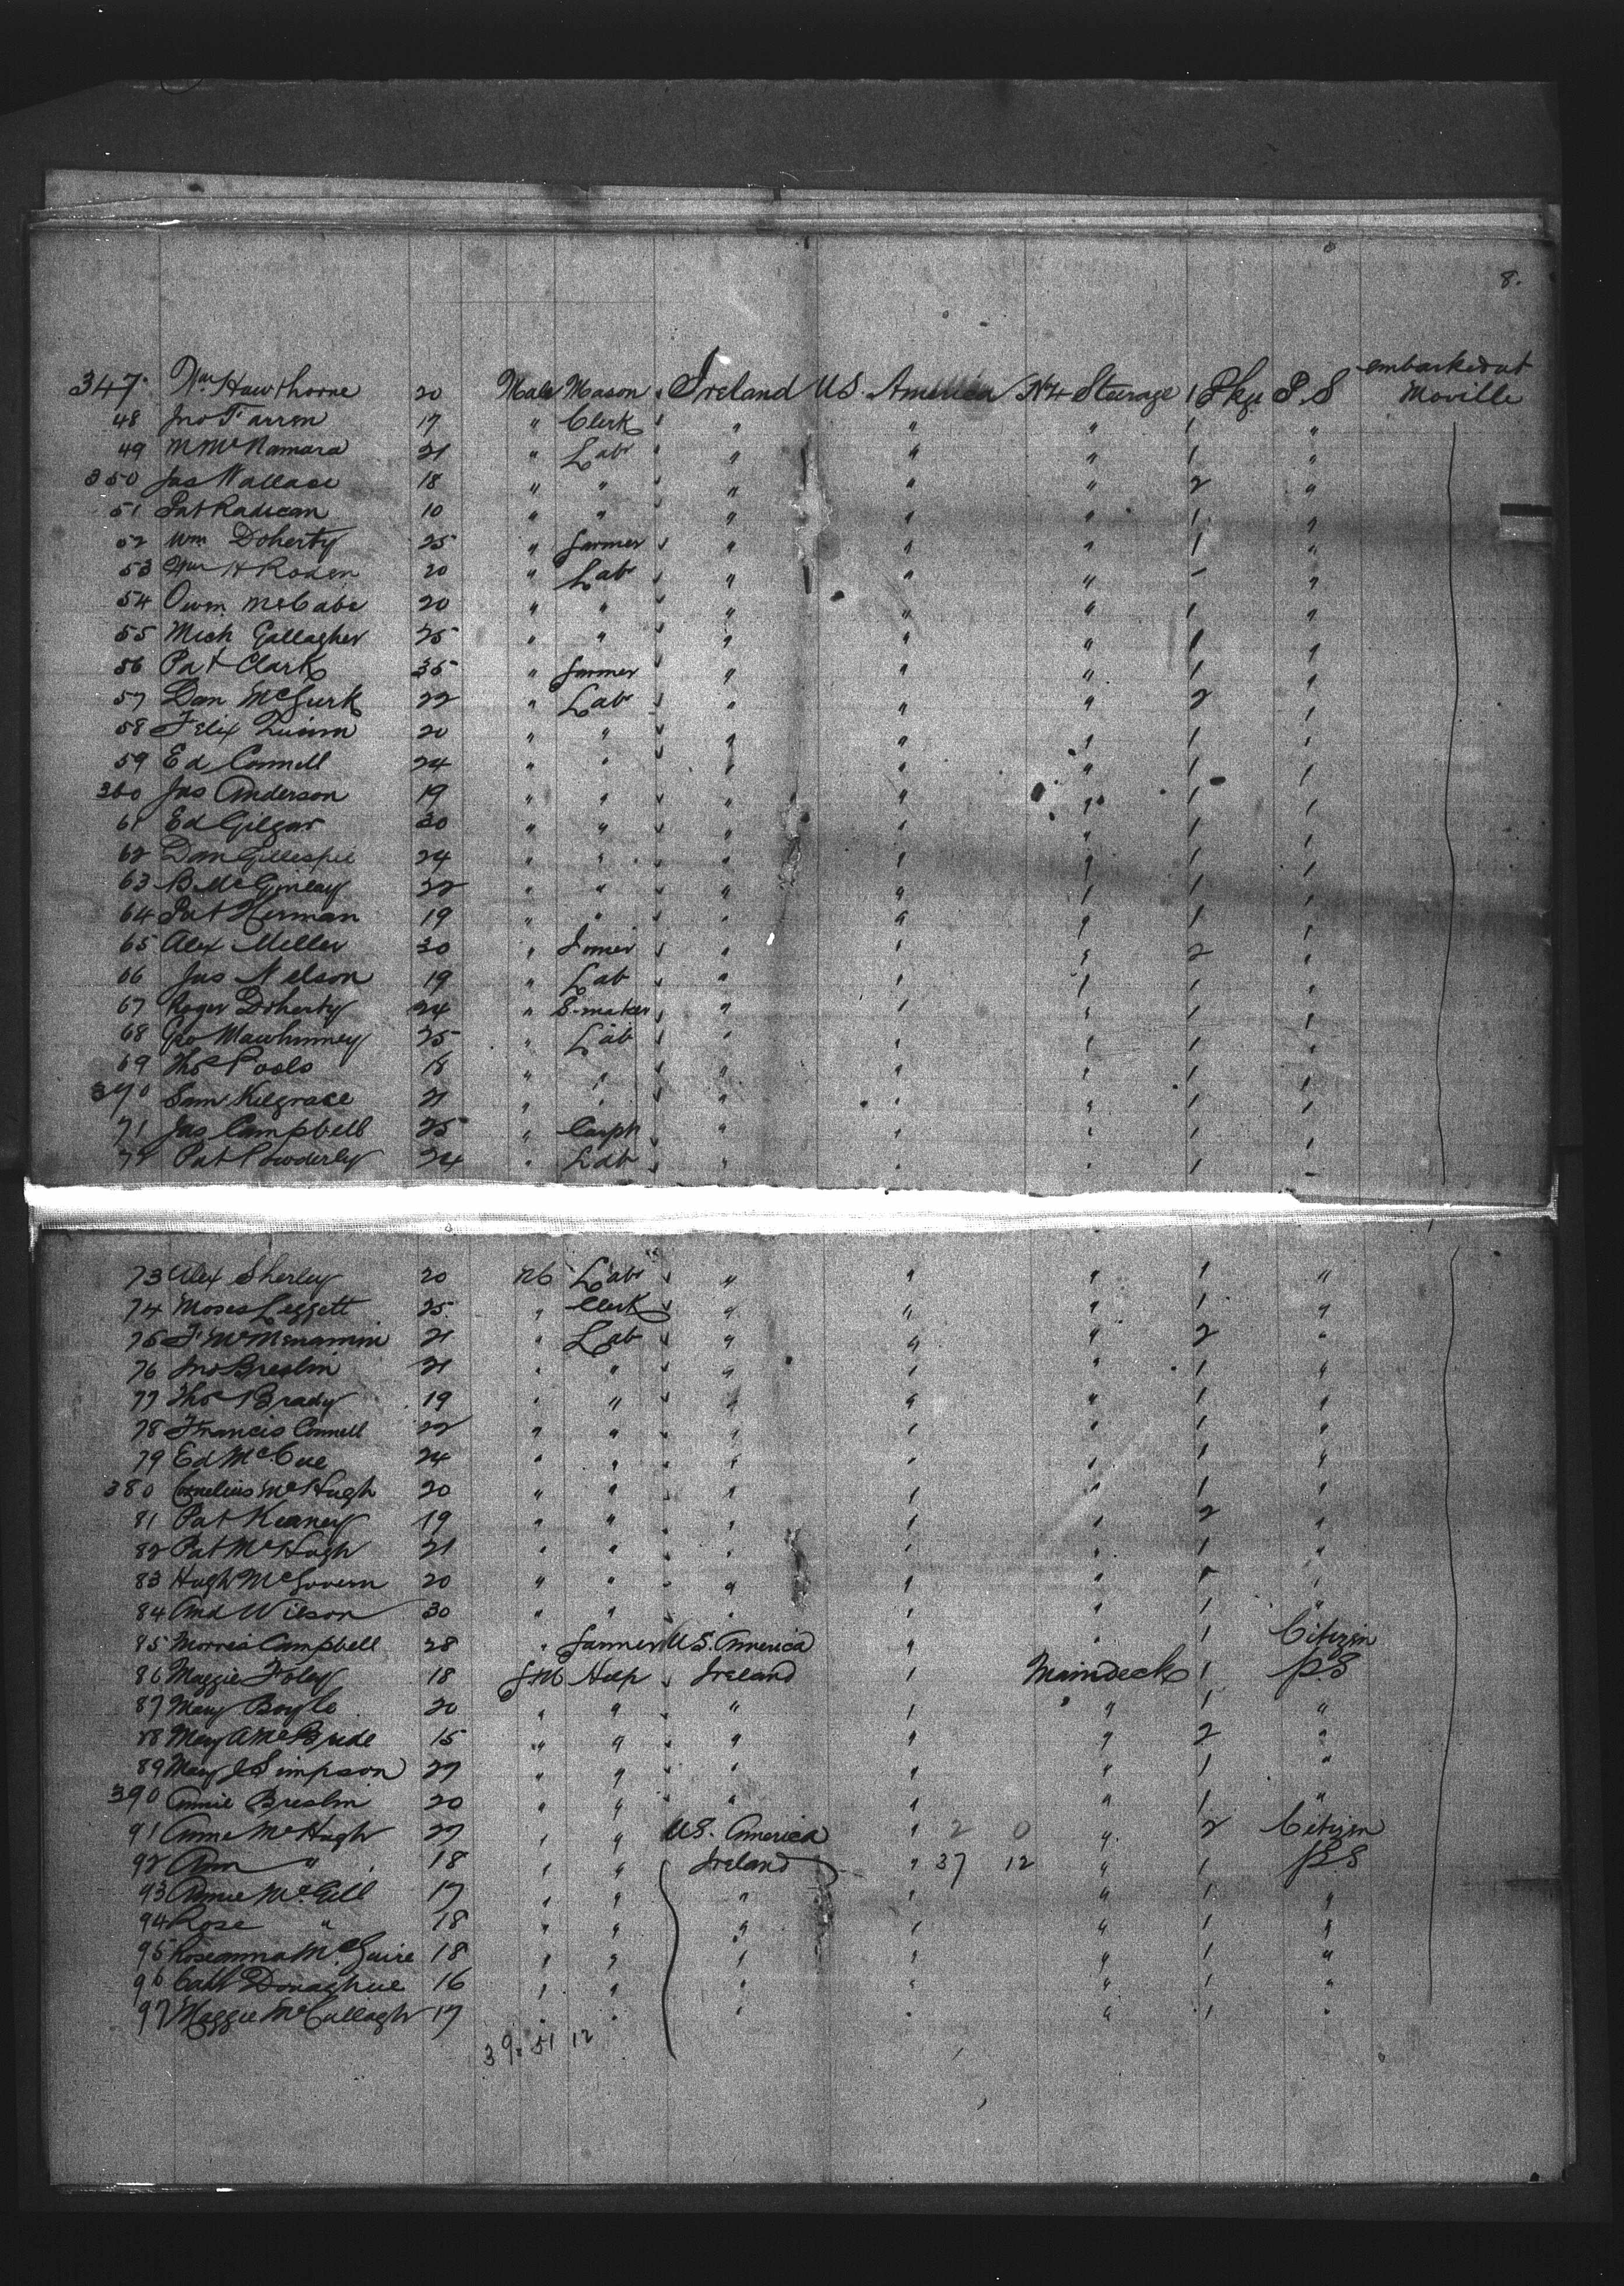 8.
embarked at
347 Wm Hawthorne 20 Male Mason Ireland US. America No 4 Steerage 1 Pkge P.S Moville
48 Jno Farren 17 " Clerk " " " 1 "
49 M McNamara 21 " Lab " " " 1 "
350 Jas Wallace 18 " " " " " 2 "
51 Pat Radican 10 " " " " " 1 "
52 Wm Doherty 25 " farmer " " " 1 "
53 Wm H Roden 20 " Lab " " " - "
54 Owen McCabe 20 " " " " " 1 "
55 Mich Gallagher 25 " " " " " 1 "
56 Pat Clark 35 " farmer " " " 1 "
57 Dan McGurk 22 " Lab " " " 2 "
58 Felix Quinn 20 " " " " " 1 "
59 Ed Connell 24 " " " " " 1 "
360 Jas Anderson 19 " " " " " 1 "
61 Ed Gilgar 30 " " " " " 1 "
62 Dan Gillespie 24 " " " " " 1 "
63 B. McGinley 22 " " " " " 1 "
64 Pat Herman 19 " " " " " 1 "
65 Alex Miller 30 " Joiner " " " 2 "
66 Jas Nelson 19 " Lab " " " 1 "
67 Roger Doherty 24 " S-maker " " " 1 "
68 Geo Mawhinney 25 " Lab " " " 1 "
69 Thos Pools 18 " " " " " 1 "
370 Sam Kilgrace 21 " " " " " 1 "
71 Jas Campbell 25 " Carptr " " " 1 "
72 Pat Powderly 24 " Lab " " " 1 "
73 Alex Sherley 20 M Lab " " " 1 "
74 Moses Leggett 25 " Clerk " " " 1 "
75 F McMenamin 21 " Lab " " " 2 "
76 Jno Breslin 21 " " " " " 1 "
77 Thos Brady 19 " " " " " 1 "
78 Francis Connell 22 " " " " " 1 "
79 Ed McCue 24 " " " " " 1 "
380 Cornelius McHugh 20 " " " " " 1 "
81 Pat Keaney 19 " " " " " 2 "
82 Pat McHugh 21 " " " " " 1 "
83 Hugh McGovern 20 " " " " " 1 "
84 And Wilson 30 " " " " " 1 "
85 Morris Campbell 28 " farmer US. America " " 1 Citizen
86 Maggie Foley 18 Help Ireland " Maindeck 1 P.S
87 Mary Boyle 20 " " " " " 1 "
88 Mary A McBride 15 " " " " " 2 "
89 Mary J Simpson 27 " " " " " 1 "
390 Annie Breslin 20 " " " " " 1 "
91 Anne McHugh 27 " " US. America " 2 0 " 2 Citizen
92 Ann " 18 " " Ireland " 37 12 " 1 P.S
93 Annie McGill 17 " " " " " 1 "
94 Rose " 18 " " " " " 1 "
95 Roseanna McGuire 18 " " " " " 1 "
96 Cath Donaghue 16 " " " " " 1 "
97 Maggie McCullagh 17 " " " " " 1 "
39. 51 12